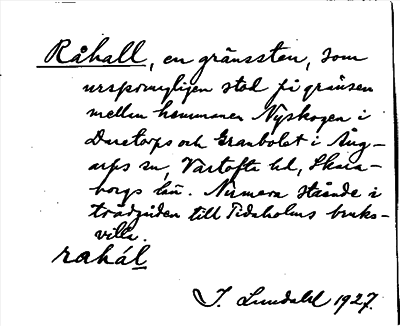 Råhall, en gränssten, som
ursprungligen stod på gränsen
mellan hemmanen Nyskogen i
Daretorps och Granbolet i Äng-
arps sn, Vartofta hd, Skara-
borgs län. Numera stående i
trädgården till Tidaholms bruks-
villa.
rahál
J. Lundahl 1927.